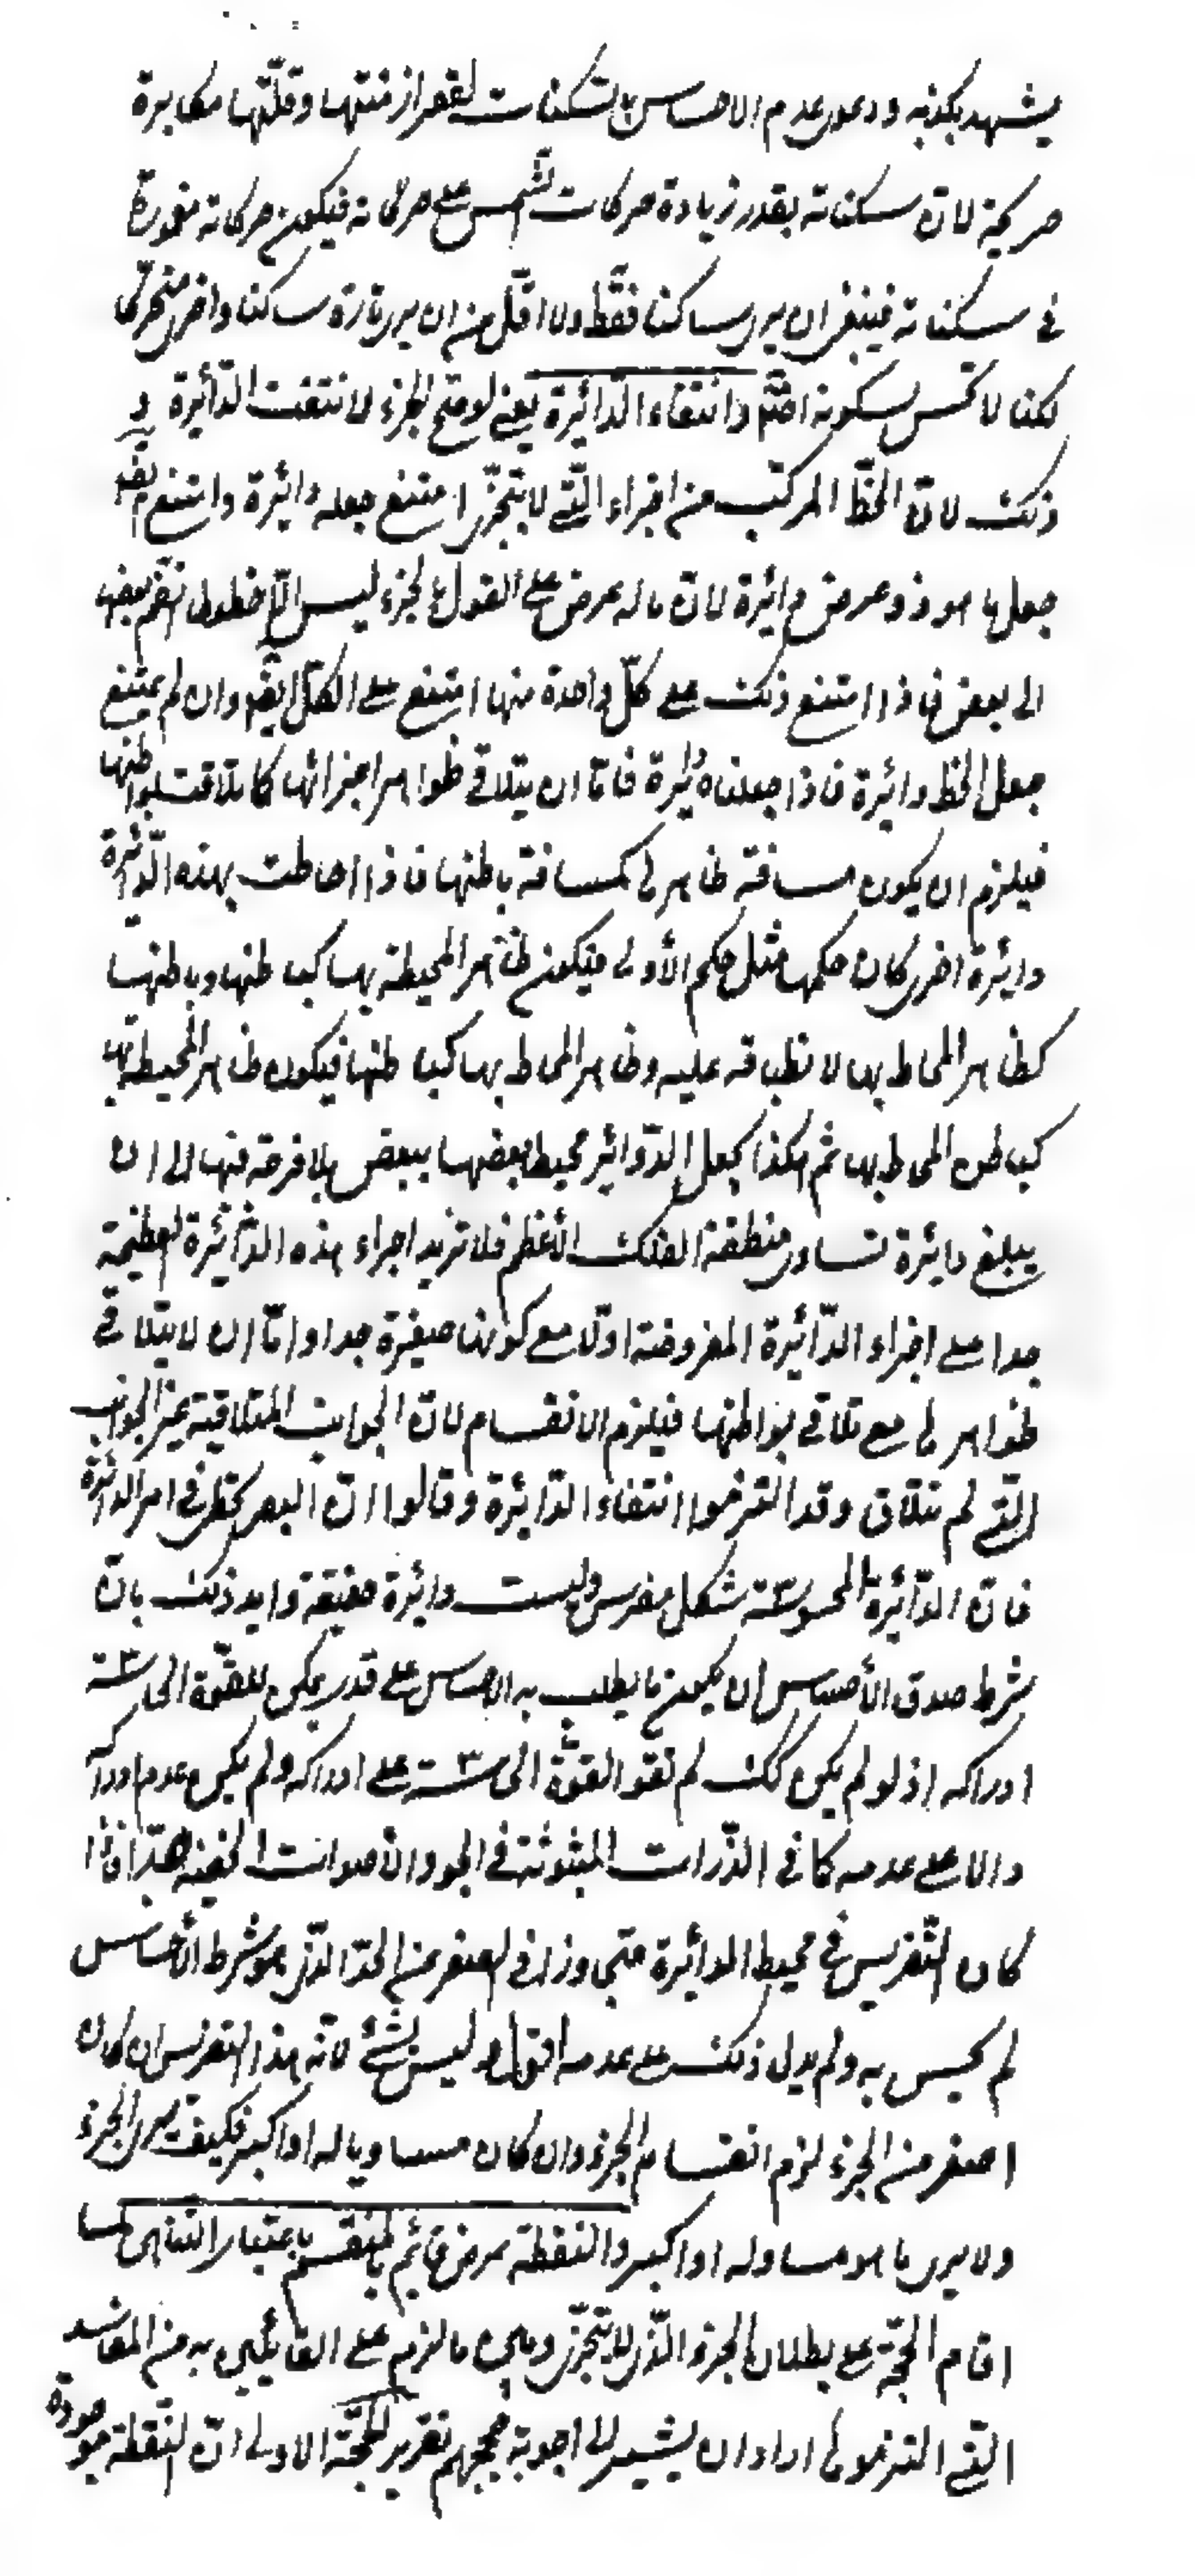 يشهد بكذبه ودعوى عدم الاحساس بالسكنات لقصر ازمنتها وقلّتها مكابرة
صريحة لانّ سكناته بقدر زيادة حركات الشمس على حركاته فيكون حركاته مغمورة
فى سكناته فينبغى ان يرى ساكنا فقط ولا اقلّ من ان يرى تارة ساكنا واخرى متحرّكا
لكنا لا نحسّ بسكونه اصلا وانتفاء الدّائرة يعنى لو صحّ الجزء لانتفت الدّائرة و
ذلك لانّ الخطّ المركّب من اجزاء الّتى لا يتجزّى امتنع جعله دائرة وامتنع ايضا
جعل ما هو ذو عرض دائرة لانّ ما له عرض على القول بالجزء ليس الّا خطوط انضم بعضها
الى بعض فاذا امتنع ذلك على كلّ واحدة منها امتنع على الكلّ ايضا وان لم يمتنع
جعل الخط دائرة فاذا جعلناه دائرة فامّا ان يتلاقى ظواهر اجزائها كما تلاقت بواطنها
فيلزم ان يكون مسافة ظاهرها كمسافة باطنها فاذا احاطت بهذه الدّائرة
دائرة اخرى كان حكمها مثل حكم الأولى فيكون ظاهر المحيطة بها كباطنها وباطنها
كظاهر المحاط بها لانطباقه عليه وظاهر المحاط بها كباطنها فيكون ظاهر المحيطة بها
كباطن المحاط بها ثم هكذا يجعل الدّوائر محيطا بعضها ببعض بلا فرجة بينها الى ان
يبلغ دائرة تساوى منطقة الفلك الأعظم فلا تزيد اجزاء هذه الدّائرة العظيمة
جدا على اجزاء الدّائرة المفروضة اوّلا مع كونها صغيرة جدا وامّا ان لا يتلاقى
ظواهرها مع تلاقى بواطنها فيلزم الانقسام لانّ الجوانب المتلاقية غير الجوانب
الّتى لم تتلاق وقد التزموا انتفاء الدّائرة وقالوا انّ البصر يخطئ فى امر الدائرة
فانّ الدّائرة المحسوسة شكل مضرس وليست دائرة حقيقة وايد ذلك بانّ
شرط صدق الأحساس ان يكون ما يطلب به الاحساس على قدر يمكن للقوّة الحاسّة
ادراكه اذ لو لم يكن كك لم تقو القوّة الحاسّة على ادراكه ولم يكن عدم ادراكه
دالا على عدمه كما فى الذّرات المبثوثة فى الجو والأصوات الخفيّة جدّا فاذا
كان التّضريس فى محيط الدائرة متجاوزا فى الصغر عن الحدّ الّذى هو شرط الأحساس
لم يحس به ولم يدل ذلك على عدمه اقول ليس بشئ لانّ هذا التضريس ان كان
اصغر من الجزء لزم انقسام الجزء وان كان مساويا له او اكبر فكيف يرى الجزء
ولا يرى ما هو مساو له او اكبر والنقطة عرض قائم بالمنقسم باعتبار التناهى لمّا
اقام الحجّة على بطلان الجزء الّذى لا يتجزّى وبيّن ما لزم على القائلين به من المفاسد
الّتى التزموها اراد ان يشير الى اجوبة حججهم تقرير الحجّة الاولى انّ النّقطة موجودة